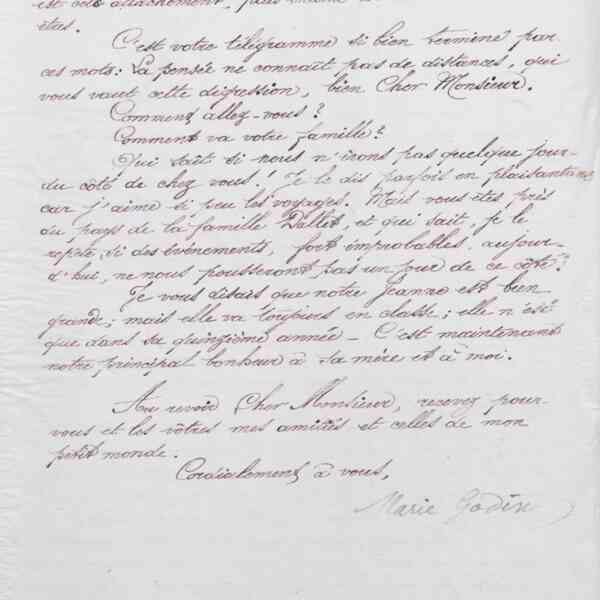 est cet attachement,
êtes.
C'est votre télégramme si bien terminé par
ces mots: La pensée ne connaît pas de distances, qui
vous vaut cette digression, bien Cher Monsieur.
Comment allez-vous?
Comment va votre famille?
Qui sait si nous n'irons pas quelque jour
du côté de chez vous! Je le dis parfois en plaisantant,
car j'aime si peu les voyages. Mais vous êtes près
du pays de la famille Dallet, et qui sait, je le
répète, si des événements, fort improbables aujour-
d'hui, ne nous pousseront pas un jour de ce côté?
Je vous disais que notre Jeanne est bien
grande; mais elle va toujours en classe; elle n'est
que dans sa quinzième année - C'est maintenant
notre principal bonheur à sa mère et à moi.
Au revoir Cher Monsieur, recevez pour
vous et les vôtres mes amitiés et celles de mon
petit monde.
Cordialement à vous,
Marie Godin